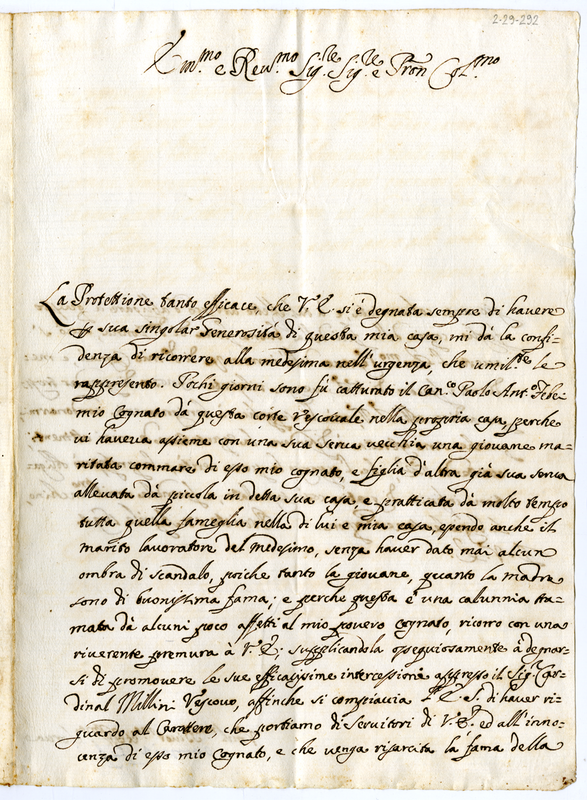 2-29-292
Em.mo e Reu.mo Sig.re Sig.re e Pron Col.mo
La Protettione tanto efficace, che V. E. si è degnata sempre di hauere
p sua singolar Generosità di questa mia casa, mi dà la confi-
denza di ricorrere alla medesima nell'urgenza, che umil.te le
rappresento. Pochi giorni sono fù catturato il Can.co Paolo Ant.o
mio Cognato dà questa corte Vescouale nella propria casa, perche
ui haueua assieme con una sua serua uecchia una giouane ma=
ritata commare di esso mio cognato, e figlia d'altra già sua serua
alleuata dà picola in detta sua casa, e pratticata dà molto tempo
tutta quella fameglia nella di lui e mia casa, essendo anche il
marito lauoratore del medesimo, senza hauer dato mai alcun
ombra di scandalo, poiche tanto la giouane, quanto la madre
sono di buonissima fama; e perche questa è una calunnia tra-
mata dà alcuni poco affetti al mio pouero Cognato, ricorro con una
riuerente premura à V. E., supplicandola ossequiosamente à degnar-
si di promouere le sue efficacissime intercessioni appresso il Sig.r Car-
dinal Millini Vescouo, affinche si compiaccia di hauer ri-
guardo al Carattere, che portiamo di Seruitori di V. E. ed all'inno-
cenza di esso mio Cognato, e che uenga risarcita la fama della